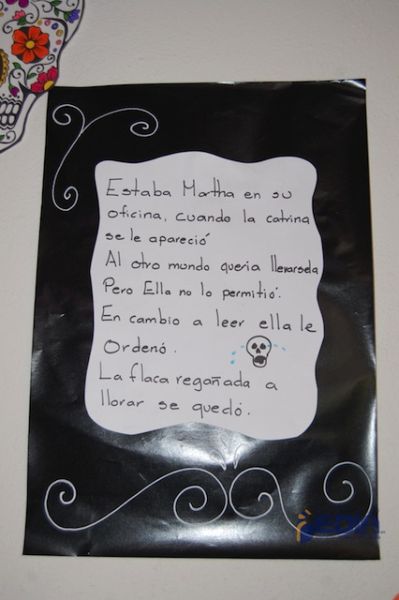 Estaba Martha en su
oficina, cuando la catrina
se le apareció
Al otro mundo quería llevarsela
Pero Ella no lo permitió.
En cambio a leer ella le
Ordenó.
La flaca regañada a
llorar se quedó.